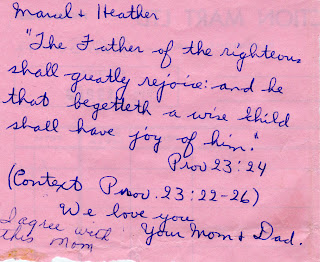 Marcel & Heather
"The Father of the righteous
shall greatly rejoice: and he
that begetteth a wise child
shall have joy of him."
Prov 23:24
(Context Prov. 23:22-26)
We love you
Your Mom & Dad.
I agree with
this Mom